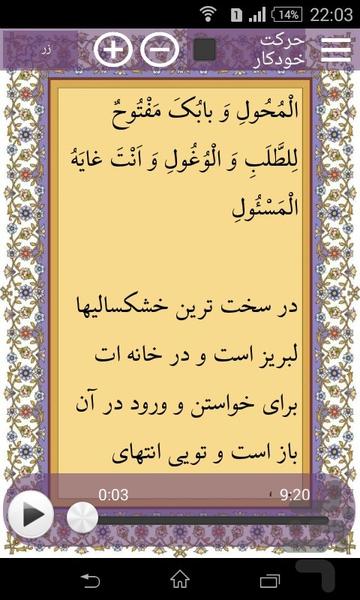 14% 22:03
حرکت
خودکار
زر
الْمُحُولِ وَ بابُکَ مَفْتُوحٌ
لِلطَّلَبِ وَ الْوُغُولِ وَ اَنْتَ غایَهُ
الْمَسْئُولِ
در سخت ترین خشکسالیها
لبریز است و در خانه ات
برای خواستن و ورود در آن
باز است و تویی انتهای
0:03 9:20